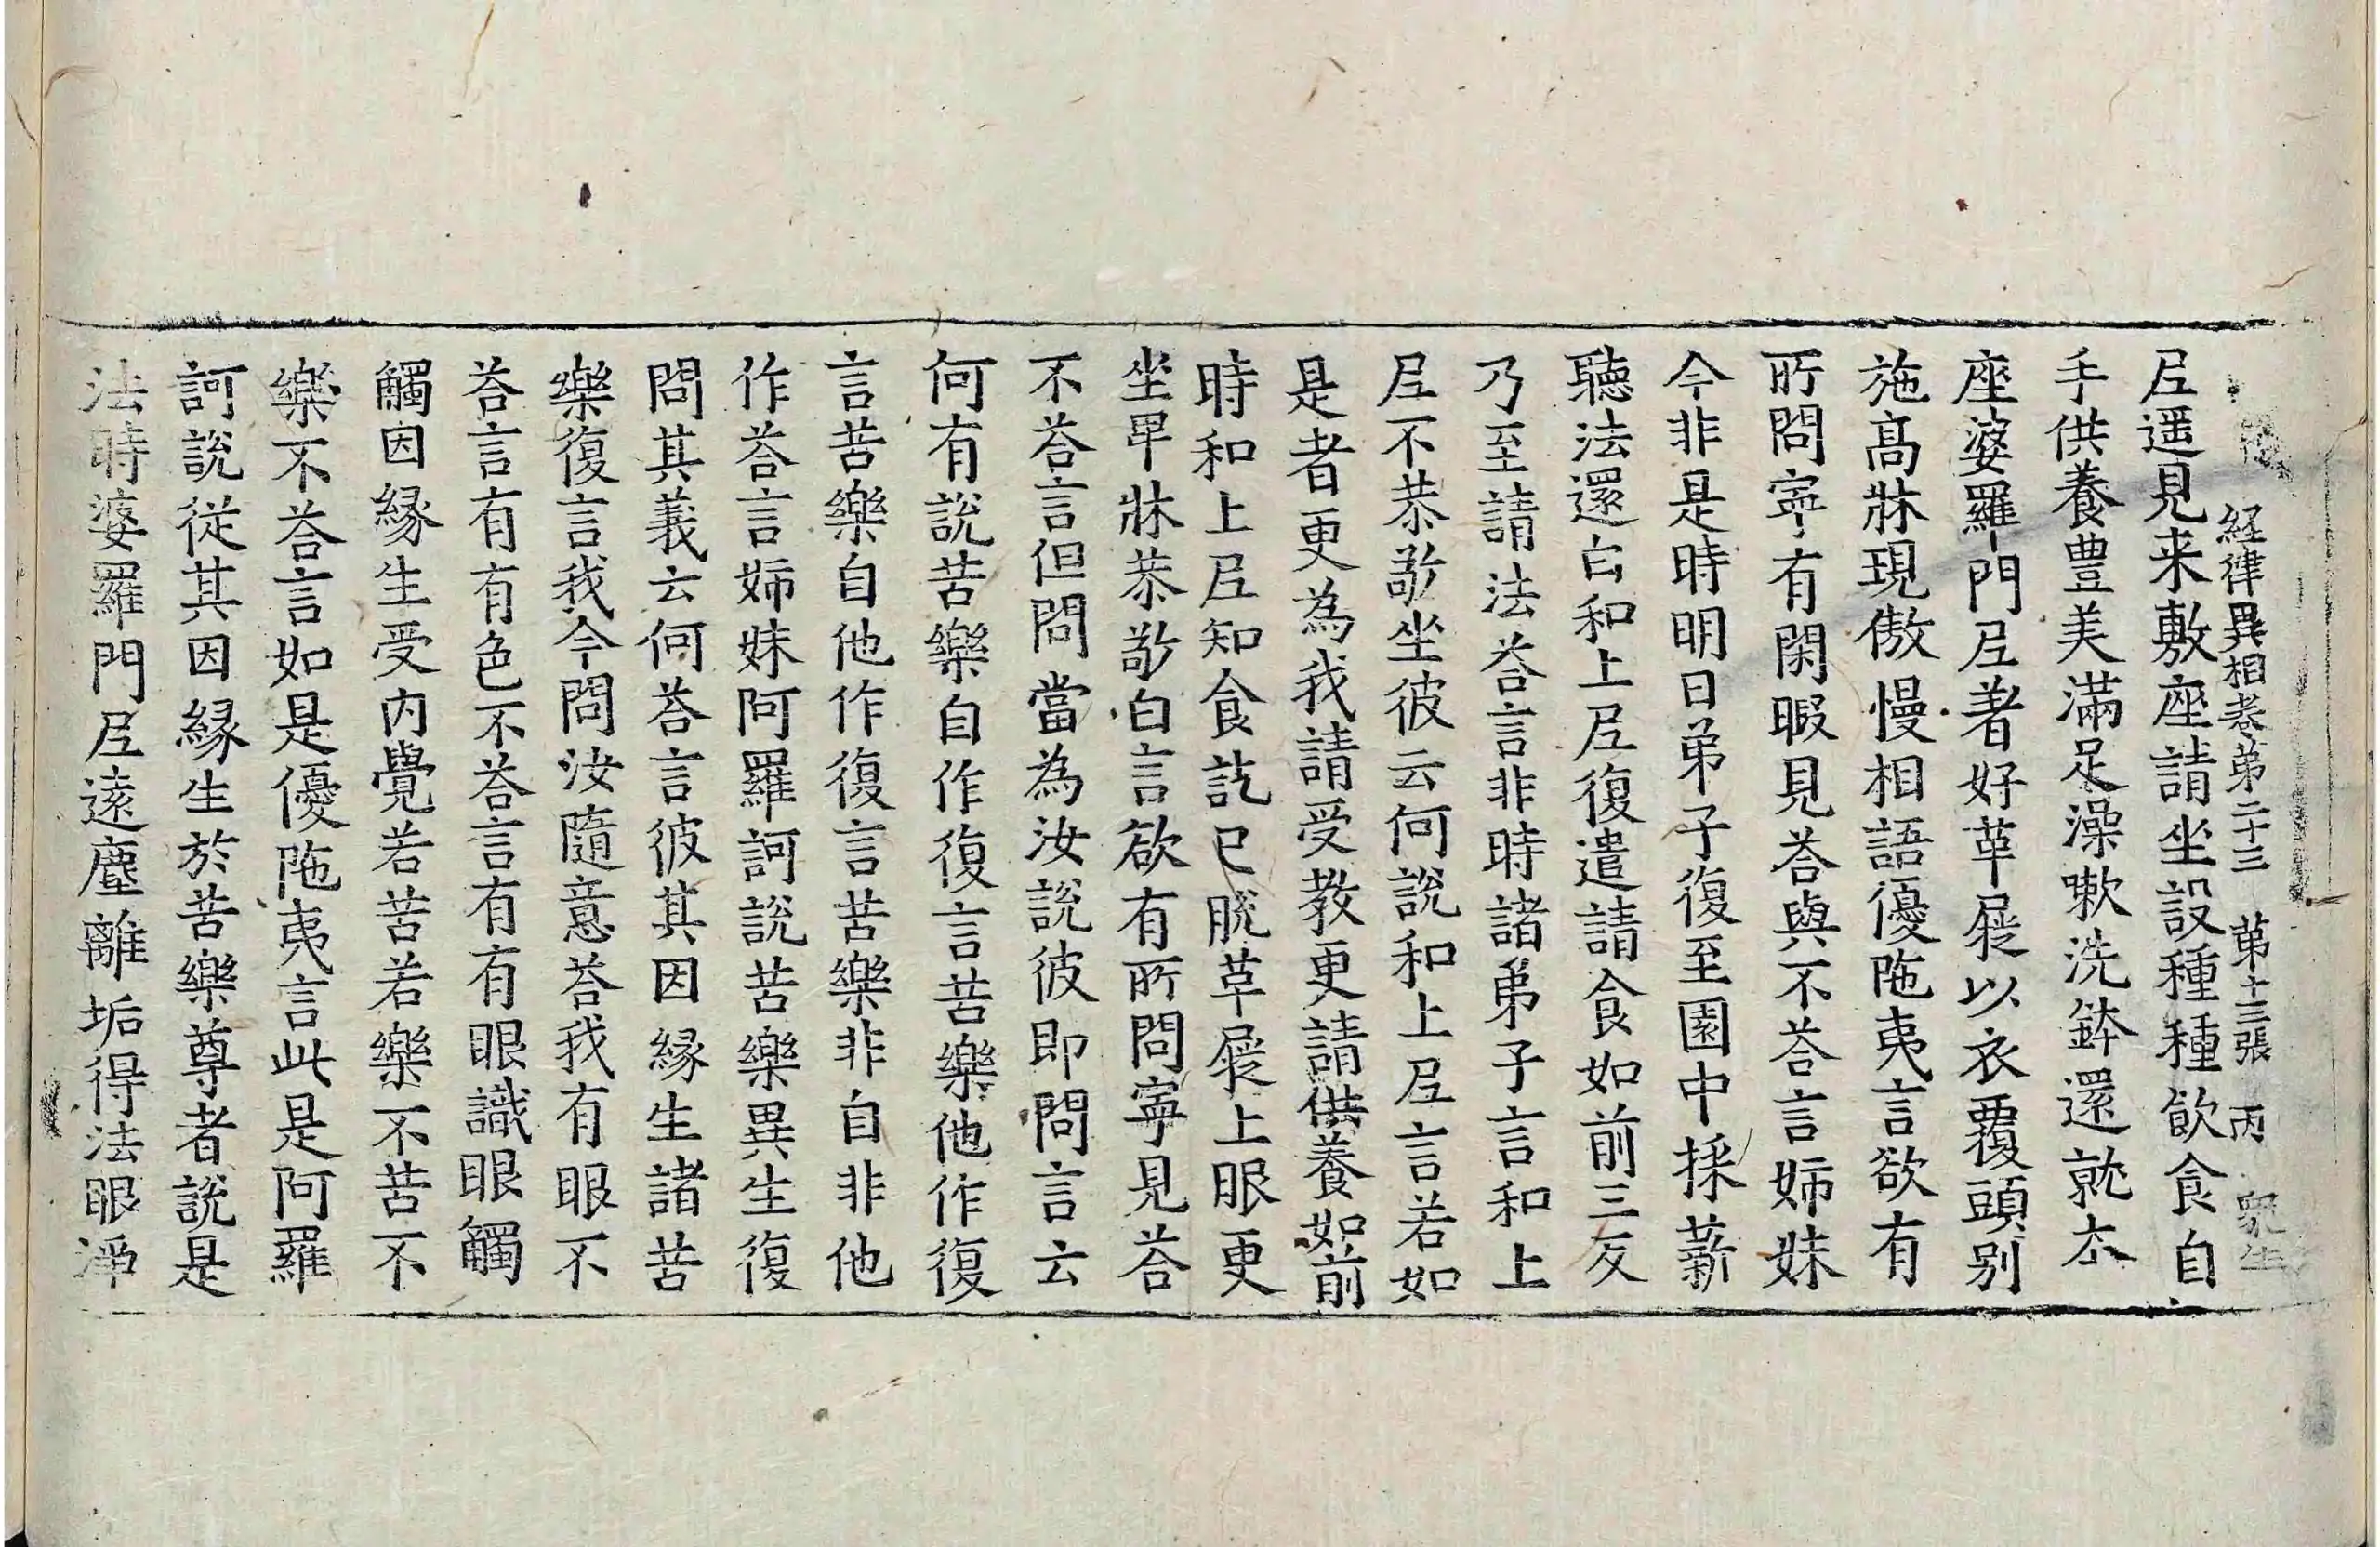 経律異相卷第二十三 第十三張 丙
尼遥見来敷座請坐設種種飲食自
手供養豊美滿足澡嗽洗鉢還就本
座婆羅門尼著好革屣以衣覆頭別
施高牀現傲慢相語優陁夷言欲有
所問寧有閑暇見荅與不荅言姉妹
今非是時明日弟子復至園中採薪
聽法還白和上尼復遣請食如前三反
乃至請法荅言非時諸弟子言和上
尼不恭敬坐彼云何說和上尼言若如
是者更為我請受教更請供養如前
時和上尼知食訖已脫革屣上服更
坐卑牀恭敬白言欲有所問寧見荅
不荅言但問當為汝說彼即問言云
何有說苦樂自作復言苦樂他作復
言苦樂自他作復言苦樂非自非他
作荅言姉妹阿羅訶說苦樂異生復
問其義云何荅言彼其因緣生諸苦
樂復言我今問汝隨意荅我有眼不
荅言有有色不荅言有有眼識眼觸
觸因緣生受内覺若苦若樂不苦不
樂不荅言如是優陁夷言此是阿羅
訶說從其因緣生於苦樂尊者說是
法時婆羅門尼遠塵離垢得法眼淨